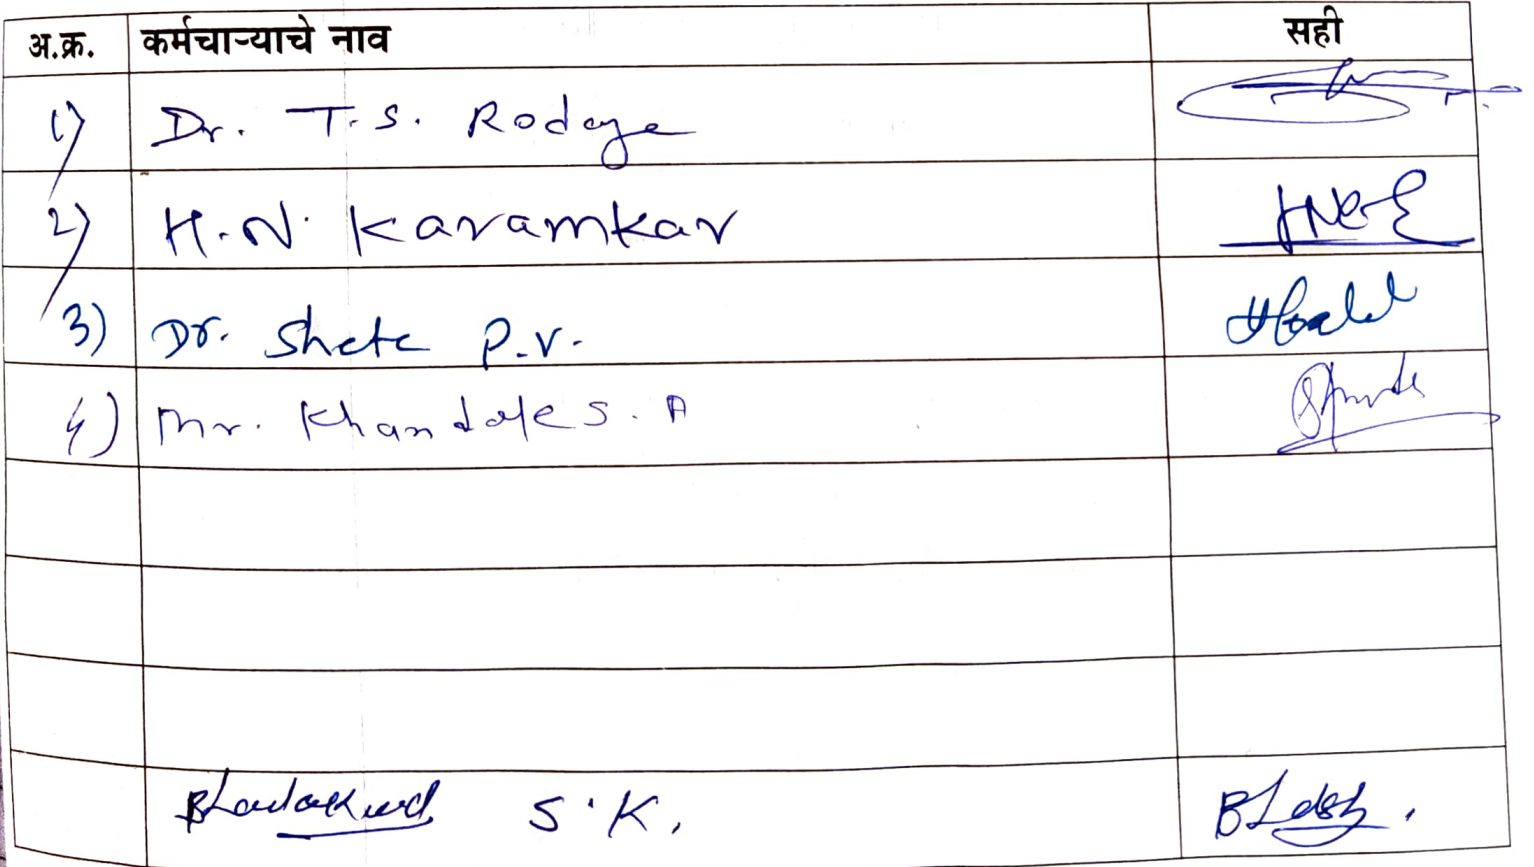 अ.क्र. कर्मचाऱ्याचे नाव सही
1) Dr. T.S. Rodage
2) H.N. Karamkar
3) Dr. Shete P.V.
4) Mr. Khandale S. A
S.K.